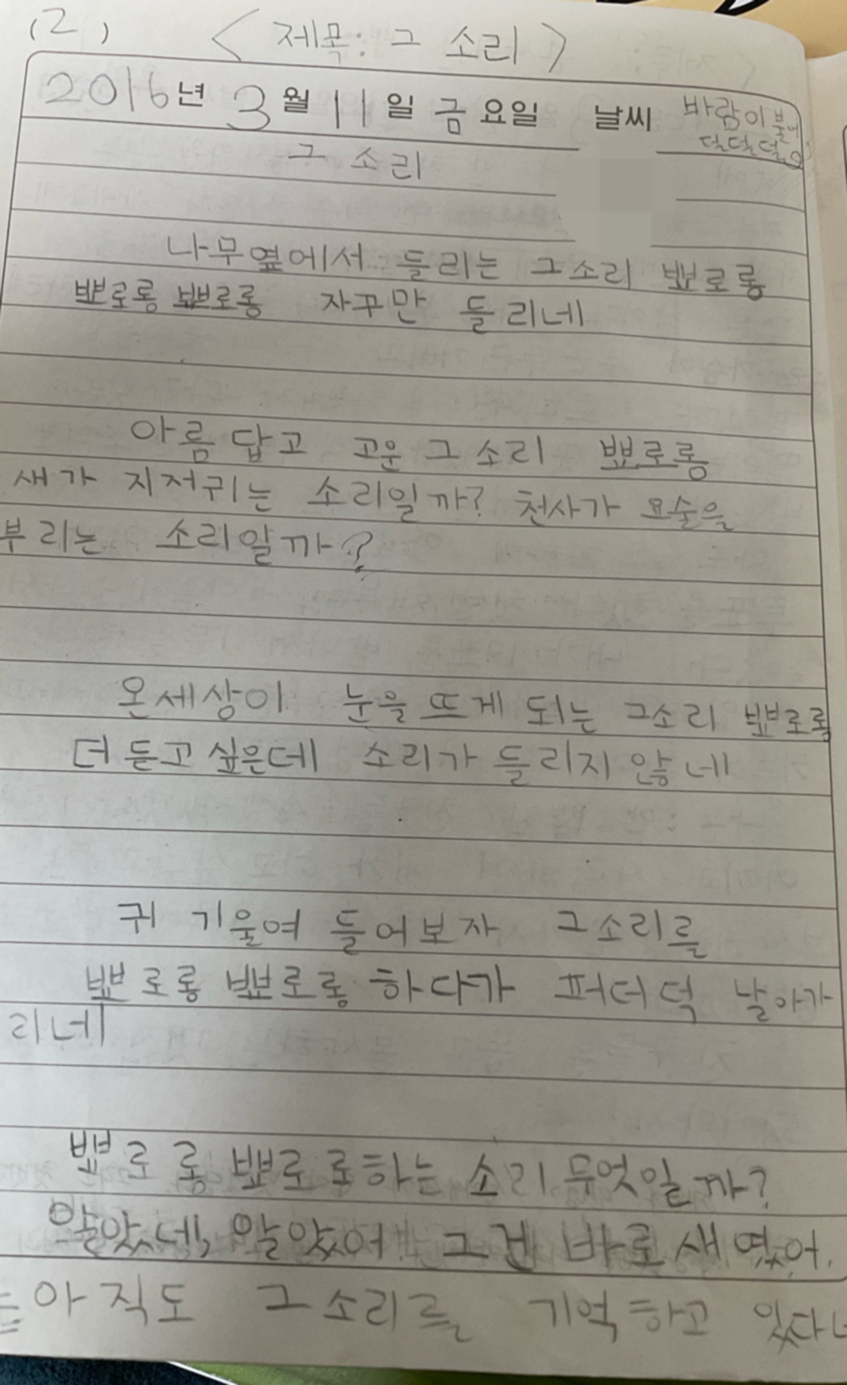 (2) <제목: 그 소리>
2016년 3월 11일 금요일 날씨 바람이 불어
덜덜덜
그 소리
나무옆에서 들리는 그소리 뾰로롱
뾰로롱 뾰로롱 자꾸만 들리네
아름답고 고운 그 소리 뾰로롱
새가 지저귀는 소리일까? 천사가 요술을
부리는 소리일까?
온세상이 눈을 뜨게 되는 그소리 뾰로롱
더 듣고 싶은데 소리가 들리지 않네
귀 기울여 들어보자 그소리를
뾰로롱 뾰로롱 하다가 퍼더덕 날아가
리네
뾰로롱 뾰로로하는 소리 무엇일까?
알았네, 알았어! 그건 바로 새였어.
는 아직도 그소리를 기억하고 있다